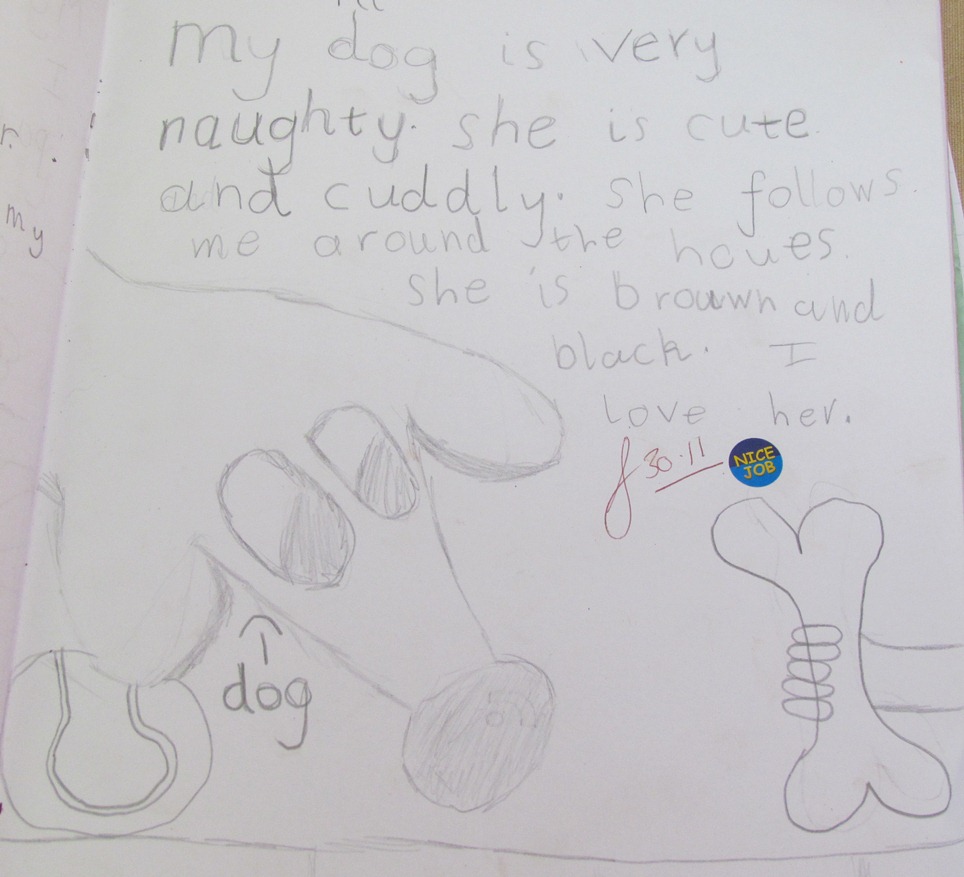 my dog is very
naughty. she is cute
and cuddly. She follows
me around the houes.
she is brouwn and
black. I
Love her.
30.11
NICE
JOB
dog
r.
my